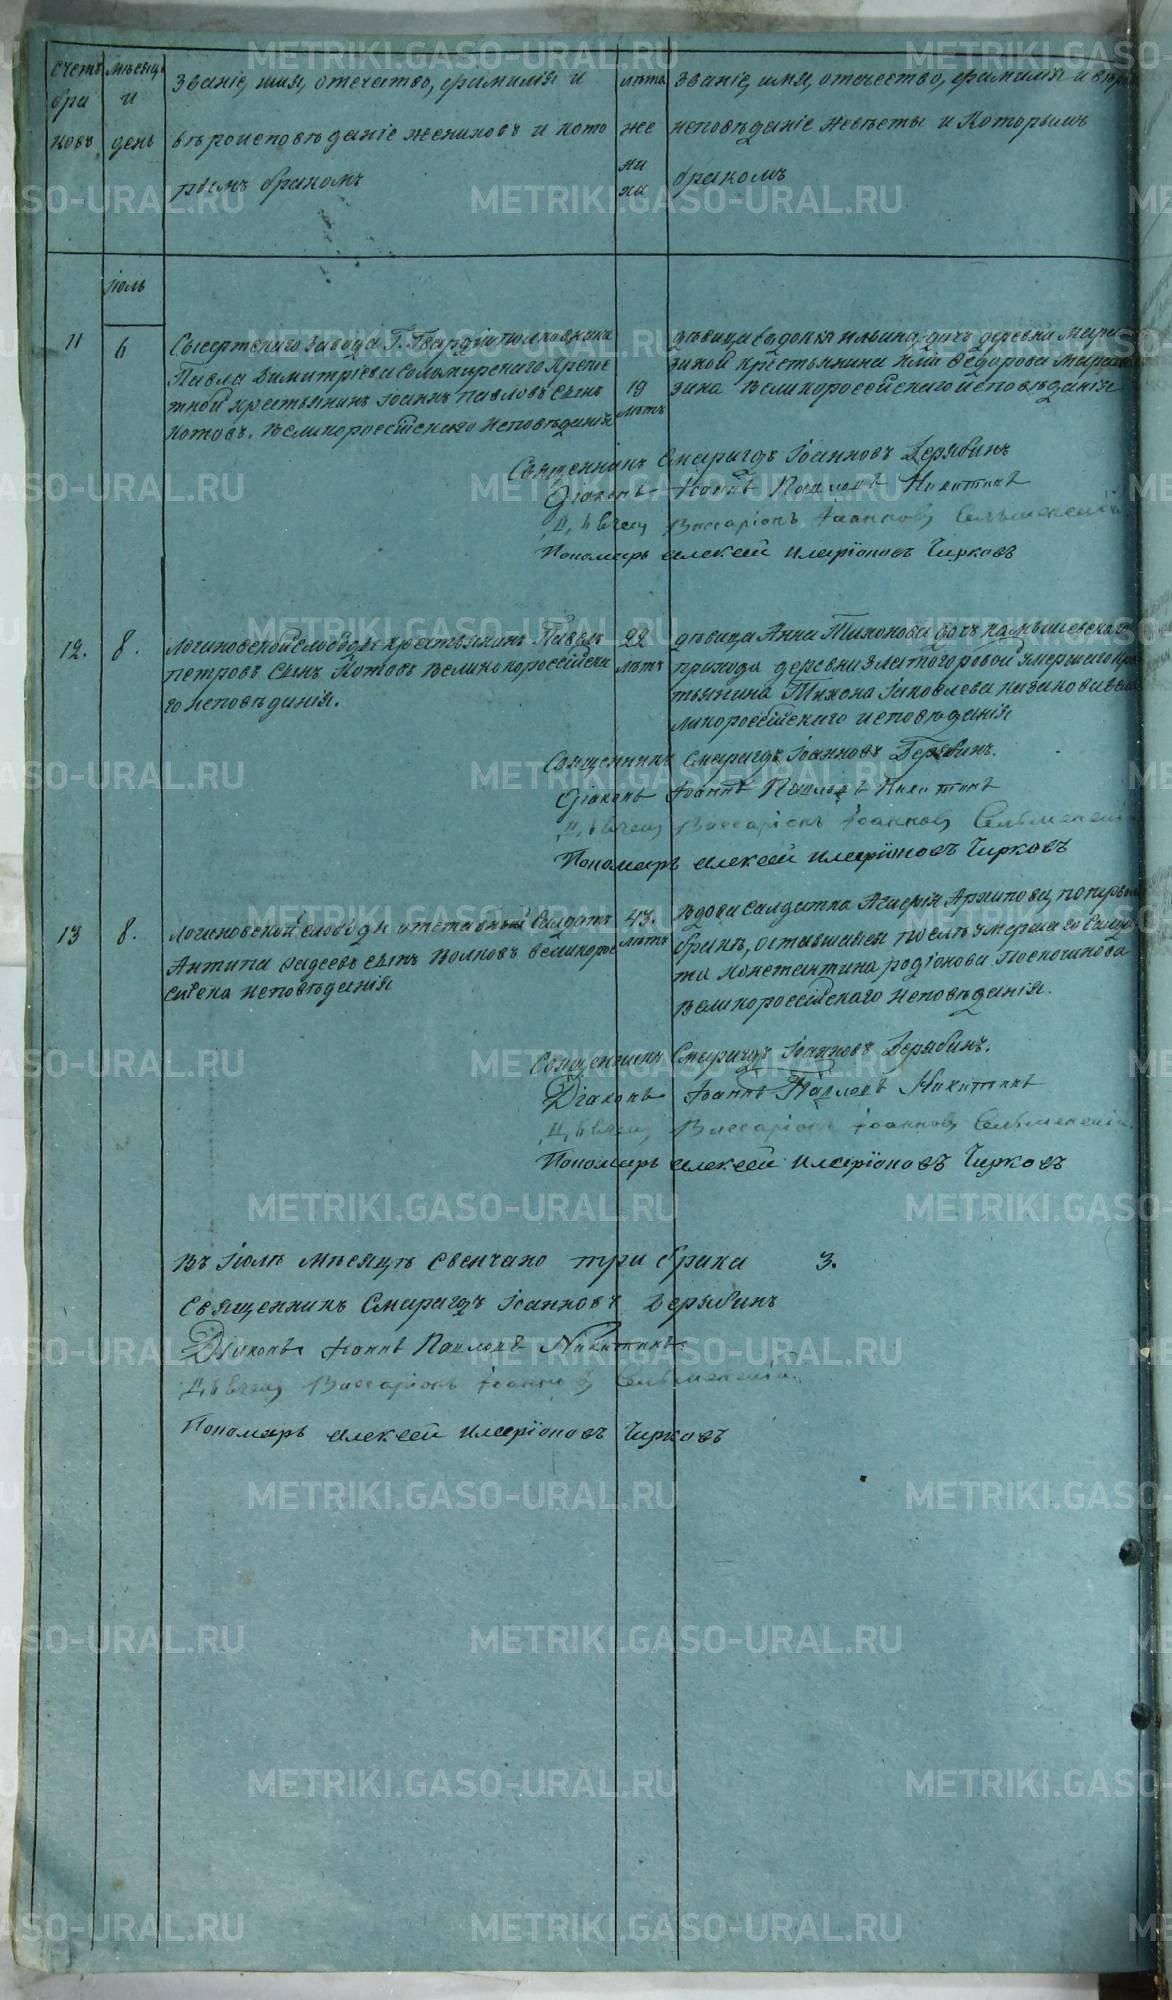 Счетъ бра ковъ
Мѣсяцъ и день
Званіе, имя, отечество, фамилія и
вѣроисповѣданіе жениховъ и кото
рымъ бракомъ
лѣта же ни ха
Званіе, имя, отечество, фамилія и вѣро
исповѣданіе невѣсты и которымъ
бракомъ
Іюль
11
6
Сысертскаго завода Г. Гвардіи полковника
Павла Димитріева Соломирскаго крепос
тной крестьянинъ Іоаннъ Павловъ сынъ
Котовъ. Великороссійскаго исповѣданія
19
лѣтъ
дѣвица Евдокія Ильина дочь деревни Мара
зиной крестьянина Иліи Ѳедорова Мара
зина Великороссійскаго исповѣданія
Священникъ Смарагдъ Іоанновъ Дерябинъ
Діаконъ Іоаннъ Павловъ Никитинъ
Виссаріонъ Іоанновъ
Пономарь Алексей Иларіоновъ Чирковъ
12.
8.
Логиновской слободы крестьянинъ Павелъ
Петровъ сынъ Котовъ Великороссійска
го исповѣданія.
22
лѣтъ
дѣвица Анна Тихонова дочь Камышевскаго
прихода деревни Златогоровой умершаго крес
тьянина Тихона Іаковлева Казакова ве
ликороссійскаго исповѣданія
Священникъ Смарагдъ Іоанновъ Дерябинъ.
Діаконъ Іоаннъ Павловъ Никитинъ
Виссаріонъ Іоанновъ
Пономарь Алексей Иларіоновъ Чирковъ
13
8.
Логиновской слободы отставный Салдатъ
Антипа Фадеевъ сынъ Волковъ великорос
сійска исповѣданія
43.
лѣтъ
Вдова салдатка Архипова, по первом
бракѣ, оставшаяся послѣ умершаго салда
та Константина Родіонова Поскочинова
Великороссійскаго исповѣданія.
Священникъ Смарагдъ Іоанновъ Дерябинъ.
Діаконъ Іоаннъ Павловъ Никитинъ
Виссаріонъ Іоанновъ
Пономарь Алексей Иларіоновъ Чирковъ
Въ Іюлѣ мѣсяцѣ свенчано три брака 3.
Священникъ Смарагдъ Іоанновъ Дерябинъ
Діаконъ Іоаннъ Павловъ Никитинъ
Виссаріонъ Іоанновъ
Пономарь Алексей Иларіоновъ Чирковъ
METRIKI.GASO-URAL.RU